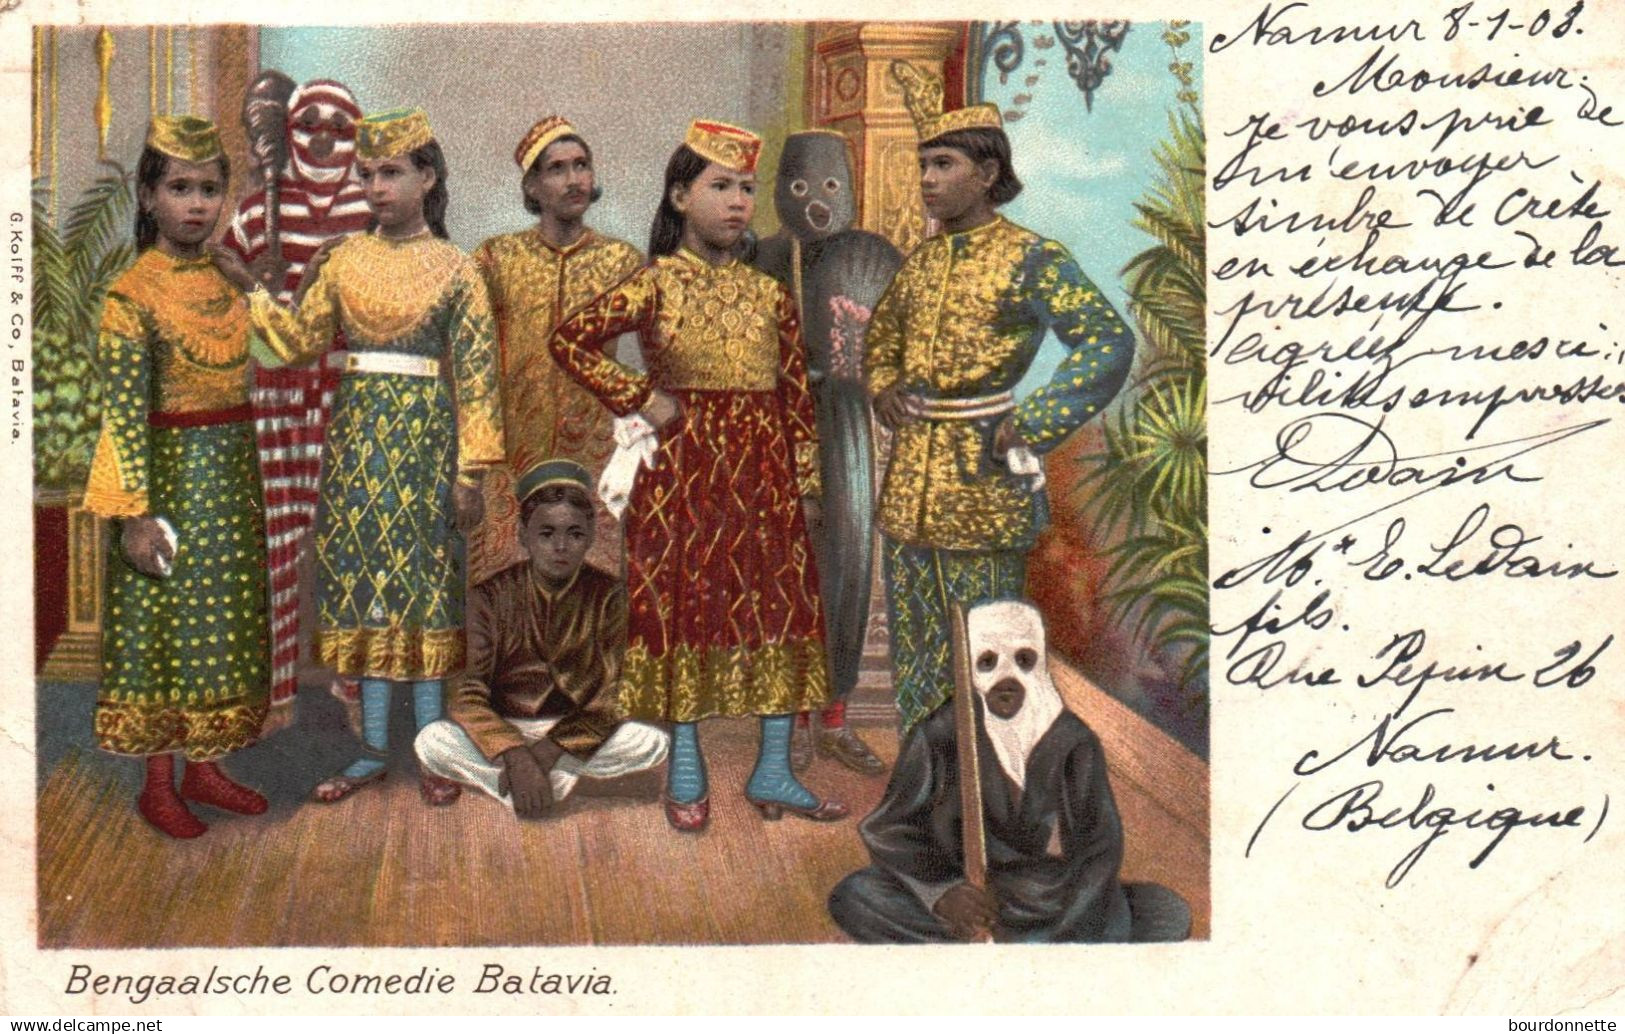 G. Kolff & Co, Batavia.
Bengaalsche Comedie Batavia.
Namur 8-1-03.
Monsieur.
Je vous prie de
m'envoyer
timbre de Crète
en échange de la
présente.
Agréez mes ci-
vilités empressées
E Ledain
Mr. E. Ledain
fils.
Rue Pepin 26
Namur.
(Belgique)
www.delcampe.net
bourdonnette